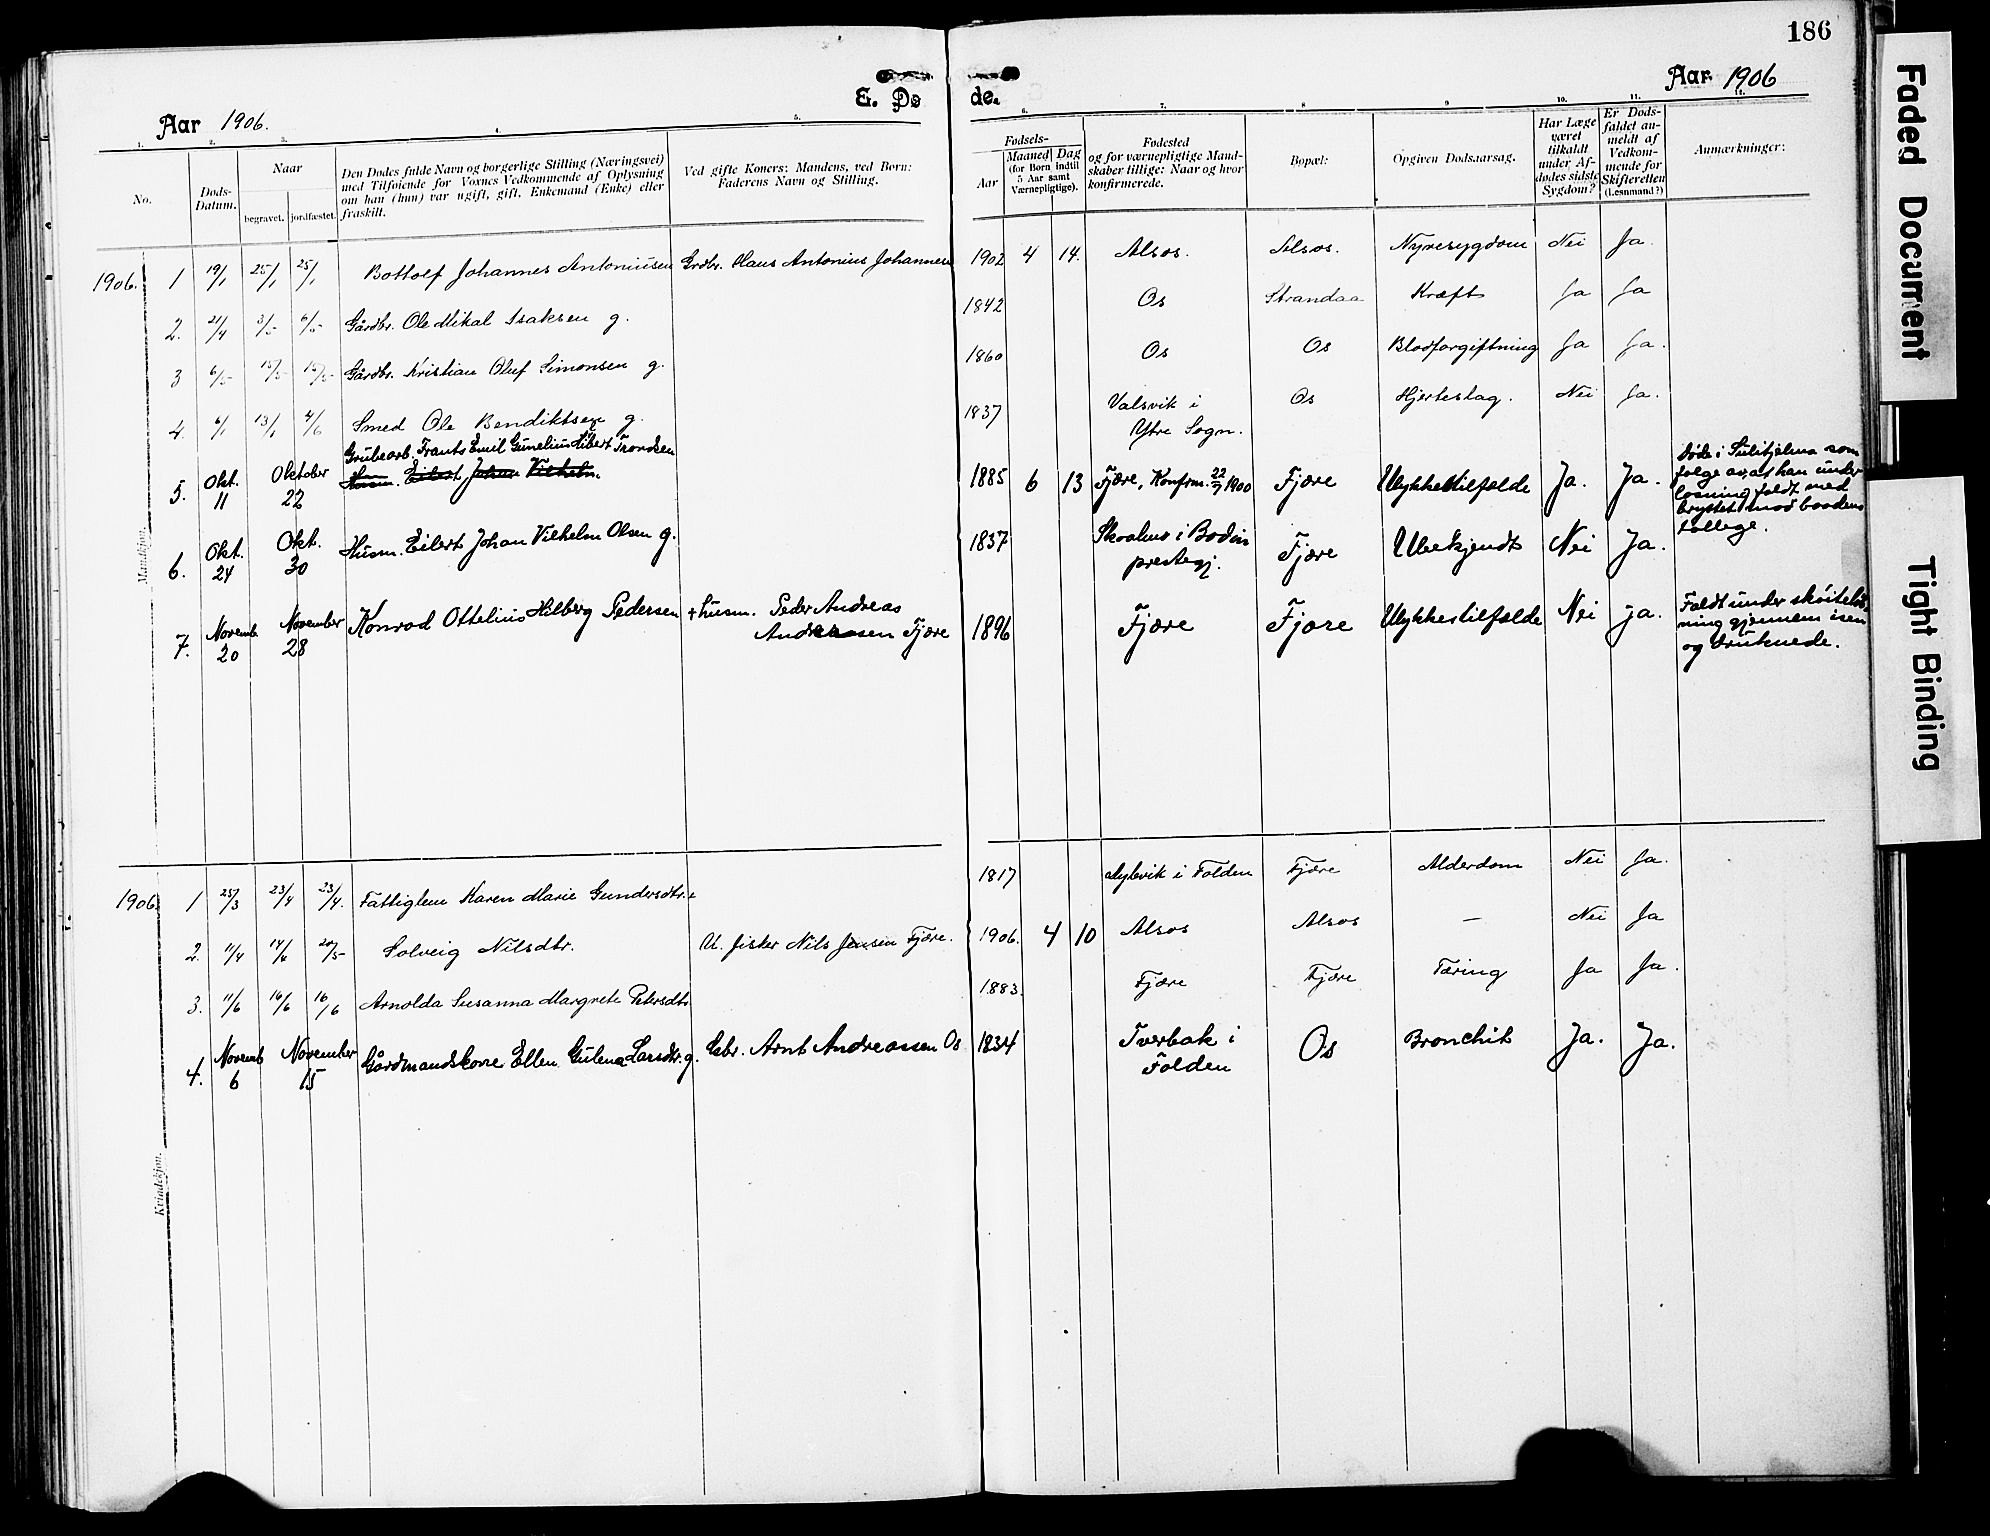 186
Aar 1906.
E. Dø
de.
Aar 1906
1. 2. 3. 4. 5. 6. 7. 8 9 10. 11. 12.
No.
Døds-Datum.
Naar
begravet. jordfæstet.
Den Dødes fulde Navn og borgerlige Stilling (Næringsvei)
med Tilføiende for Voxnes Vedkommende af Oplysning
om han (hun) var ugift, gift, Enkemand (Enke) eller
fraskilt.
Ved gifte Koner: Mandens, ved Børn:
Faderens Navn og Stilling.
Fødsels-
Aar
Maaned Dag
(for Børn indtil
5 Aar samt
Værnepligtige).
Fødested
og for værnepligtige Mand-
skaber tillige: Naar og hvor
konfirmerede.
Bopæl:
Opgiven Dødsaarsag.
Har Læge
været
tilkaldt
under Af-
dødes sidste
Sygdom?
Er Døds-
faldet an-
meldt af
Vedkom-
mende for
Skifteretten
(Lensmand?)
Anmærkninger:
Mandkjøn.
1906. 1 19/1 25/1 25/1 Bottolf Johannes Antoniussen Grdbr. Hans Antonius Johannesen 1902 4 14. Alsos. Alsos. Nyresygdom Nei Ja.
2. 21/4 3/5 6/5 Gårdbr. Ole Mikal Isaksen g. 1842 Os Strandaa Kræft Ja Ja
3 6/5 15/5 15/5 Gårdbr. Kristian Oluf Simonsen g. 1860 Os Os Blodforgiftning Ja Ja.
4. 6/1 13/1 4/6 Smed Ole Bendiktsen g. 1837 Valsvik i
Ytre Sogn. Os Hjerteslag. Nei Ja.
Grubearb. Frants Emil Gunelius Hibert Trondsen
5. Okt. 11 Oktober 22 Husm. Eilert Johan Vilhelm. 1885 6 13 Fjære, Konfrm. 22/7 1900 Fjære Ulykkestilfælde Ja. Ja.
Døde i Sulitjelma som
følge av, at han under
losning faldt med
brystet mod baadens
tollege.
6. Okt. 24 Okt. 30 Husm. Eilert Johan Vilhelm Olsen g. 1837 Skvalmo i Bodin
prestegj. Fjære Ubekjendt Nei Ja.
7. Novemb. 20 November 28 Konrad Ottelius Hilberg Pedersen + Husm. Peder Andreas
Andreassen Fjære 1896 Fjære Fjære Ulykkestilfælde Nei ja.
Faldt under skøiteløb-
ning gjennem isen
og druknede.
Kvindekjøn.
1906 1 25/3 23/4 23/4. Fattiglem Karen Marie Gundersdtr. e 1817 Nylvik i Folden Fjære Alderdom Nei Ja.
2. 11/4 14/6 20/5 Solveig Nilsdtr. U. fisker Nils Jensen Fjære. 1906. 4 10 Alsos Alsos — Nei Ja
3. 11/6 16/6 16/6 Arnolda Susanna Margrete Petersdtr. 1883. Fjære Fjære Tæring Ja Ja.
4. Novemb 6 November 15 Gårdmandskone Ellen Gulena Larsdtr. g. Gbr. Arnt Andreassen Os 1834 Tverbak i
Folden Os Bronchit Ja. Ja.
Faded Document
Tight Binding